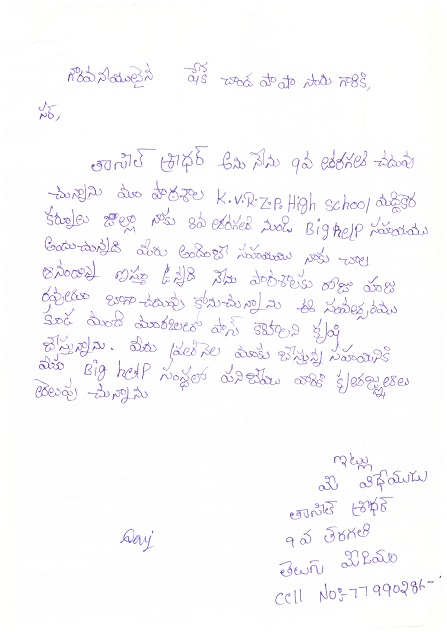 గౌరవనీయులైన షేక్ చాంద పాషా సారు గారికి,
సర్,
తాసిల్ శ్రీధర్ అను నేను 9వ తరగతి చదువు
చున్నాను మా పాఠశాల K.V.R Z.P. High School మద్దికెర
కర్నూలు జిల్లా నాకు 8వ తరగతి నుండి Big help సహాయము
అందుచున్నది మీరు అందించే సహాయము నాకు చాల
ఆనందాన్ని ఇస్తూ ఉన్నది నేను పాఠశాలకు రోజు హాజ
రవుతూ బాగా చదువు కోనుచున్నాను ఈ సంవత్సరము
కూడ మంచి మార్కులతో పాస్ కావాలని కృషి
చేస్తున్నాను. మీరు ప్రతి నెల మాకు చేస్తున్న సహాయానికి
మీకు Big help సంస్థలో పనిచేయు వారికి కృతజ్ఞతలు
తెలుపు చున్నాను
ఇట్లు
మీ విధేయుడు
తాసిల్ శ్రీధర్
9వ తరగతి
తెలుగు మీడియం
Cell No:-